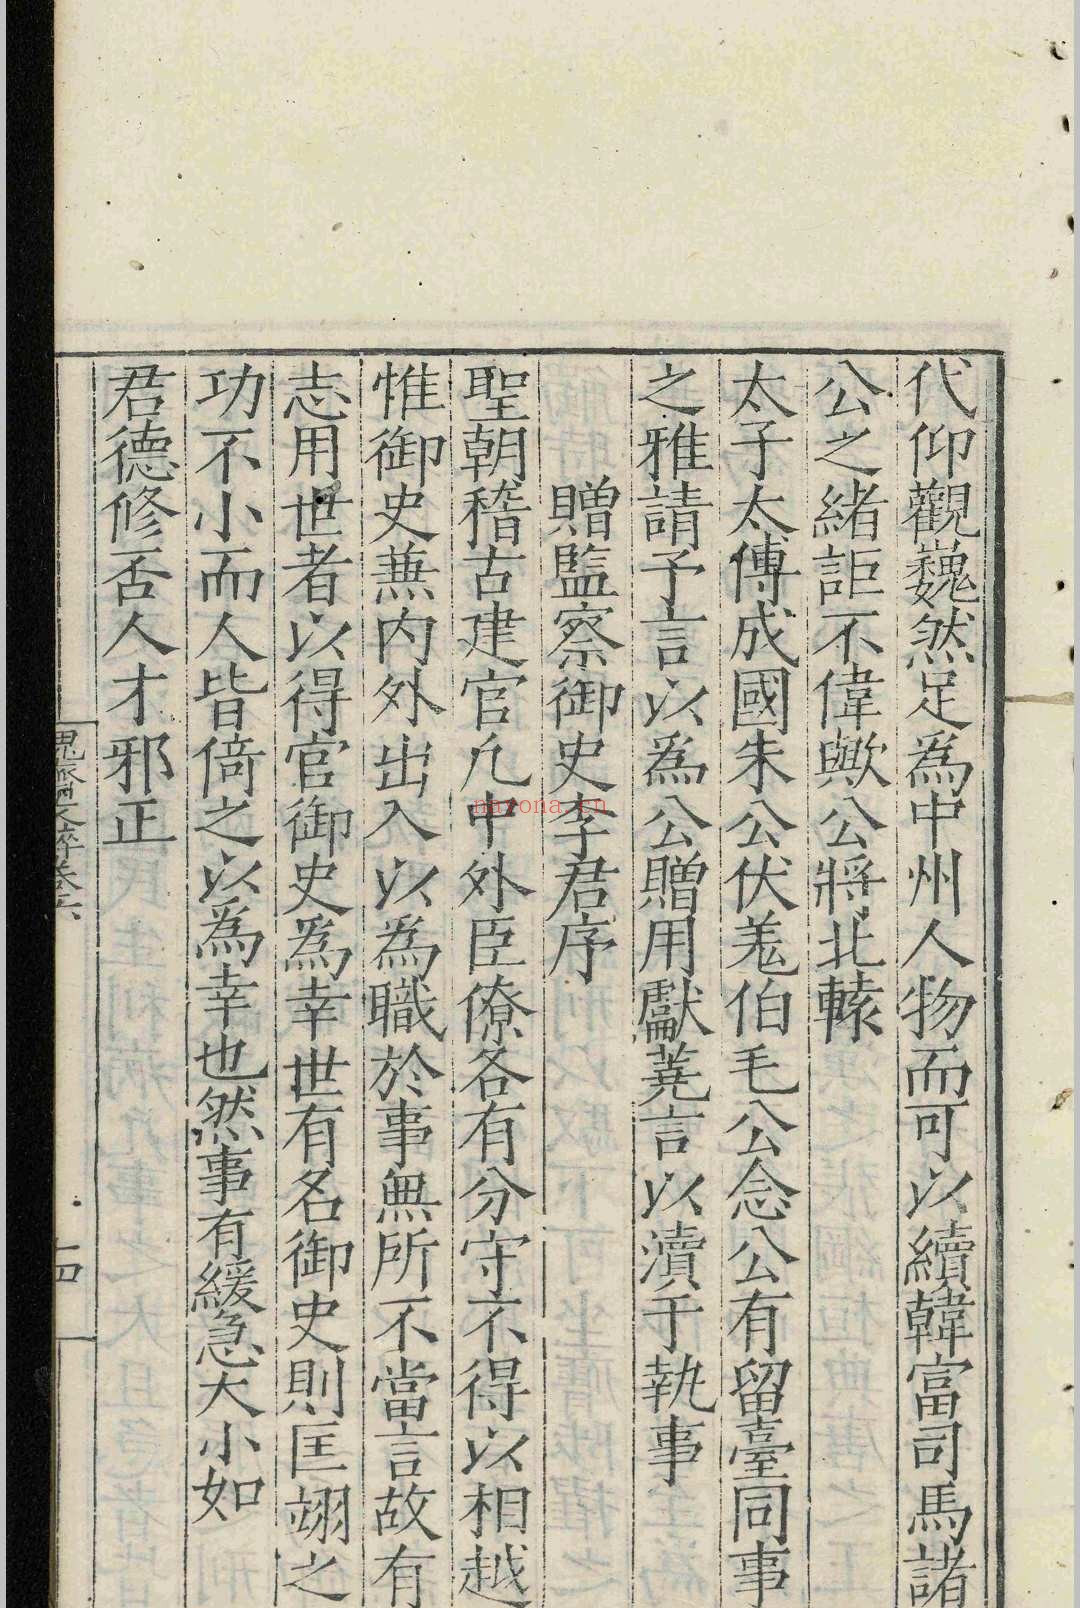 代仰觀巍然足爲中州人物而可以續韓富司馬諸
公之緒詎不偉歟公將北轅
太子太傅成國朱公伏羗伯毛公念公有留臺同事
之雅請予言以爲公贈用獻蕘言以瀆于執事
贈監察御史李君序
聖朝稽古建官凢中外臣僚各有分守不得以相越
惟御史兼内外出入以爲職於事無所不當言故有
志用世者以得官御史爲幸世有名御史則匡翊之
功不小而人皆倚之以爲幸也然事有緩急大小如
君德修否人才邪正
文粹卷六
十四
nazona.cn